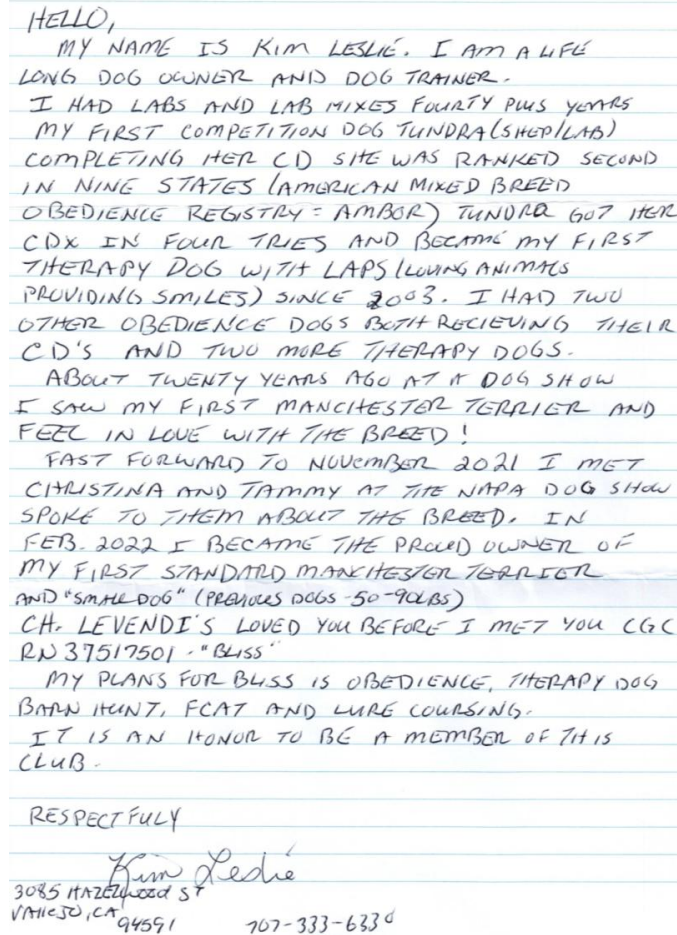 HELLO,
MY NAME IS KIM LESLIE. I AM A LIFE
LONG DOG OWNER AND DOG TRAINER.
I HAD LABS AND LAB MIXES FOURTY PLUS YEARS
MY FIRST COMPETITION DOG TUNDRA (SHEP/LAB)
COMPLETING HER CD SHE WAS RANKED SECOND
IN NINE STATES (AMERICAN MIXED BREED
OBEDIENCE REGISTRY = AMBOR) TUNDRA GOT HER
CDX IN FOUR TRIES AND BECAME MY FIRST
THERAPY DOG WITH LAPS (LOVING ANIMALS
PROVIDING SMILES) SINCE 2003. I HAD TWO
OTHER OBEDIENCE DOGS BOTH RECIEVING THEIR
CD'S AND TWO MORE THERAPY DOGS.
ABOUT TWENTY YEARS AGO AT A DOG SHOW
I SAW MY FIRST MANCHESTER TERRIER AND
FEEL IN LOVE WITH THE BREED!
FAST FORWARD TO NOVEMBER 2021 I MET
CHRISTINA AND TAMMY AT THE NAPA DOG SHOW
SPOKE TO THEM ABOUT THE BREED. IN
FEB. 2022 I BECAME THE PROUD OWNER OF
MY FIRST STANDARD MANCHESTER TERRIER
AND "SMALL DOG" (PREVIOUS DOGS -50-90LBS)
CH. LEVENDI'S LOVED YOU BEFORE I MET YOU CGC
RN 37517501 - "BLISS"
MY PLANS FOR BLISS IS OBEDIENCE, THERAPY DOG
BARN HUNT, FCAT AND LURE COURSING.
IT IS AN HONOR TO BE A MEMBER OF THIS
CLUB.
RESPECTFULY
Kim Leslie
3085 HAZELWOOD ST
VALLEJO, CA
94591 707-333-6330